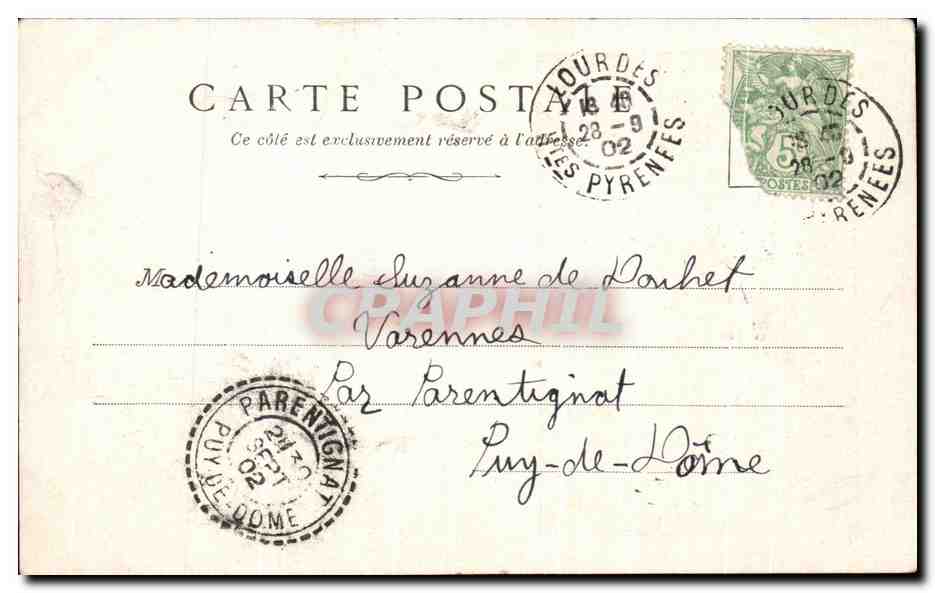 CARTE POSTALE
Ce côté est exclusivement réservé à l'adresse.
LOURDES
18 40
28 - 9
02
HTES PYRENEES
LOURDES
28 - 9
02
PYRENEES
5
POSTES
Mademoiselle Suzanne de Douhet
Varennes
Par Parentignat
Puy-de-Dôme
CPAPHIL
PARENTIGNAT
30
SEPT
02
PUY-DE-DOME